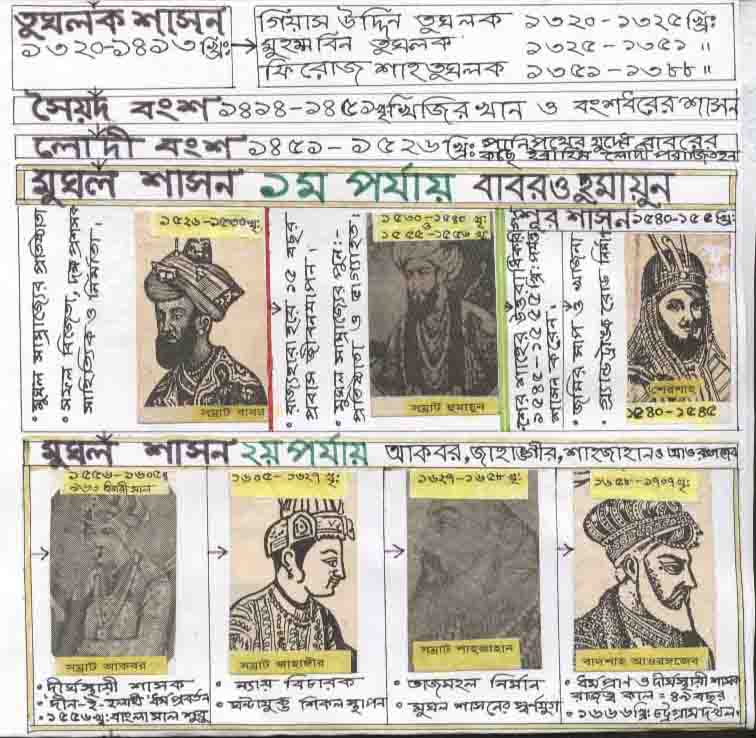 তুঘলক শাসন
১৩২০-১৪১৩ খ্রিঃ
গিয়াস উদ্দিন তুঘলক ১৩২০ - ১৩২৫ খ্রিঃ
মুহম্মদ বিন তুঘলক ১৩২৫ - ১৩৫১ ,,
ফিরোজ শাহ তুঘলক ১৩৫১ - ১৩৮৮ ,,
সৈয়দ বংশ ১৪১৪-১৪৫১খৃঃ খিজির খান ও বংশধরের শাসন
লোদী বংশ ১৪৫১ - ১৫২৬ খ্রিঃ পানি পথের যুদ্ধে বাবরের
কাছে ইব্রাহিম লোদী পরাজিত হন
মুঘল শাসন ১ম পর্যায় বাবর ও হুমায়ুন
• মুঘল সাম্রাজ্যের প্রতিষ্ঠাতা
• সফল বিজেতা, দক্ষ প্রশাসক
সাহিত্যিক ও নির্মাতা।
১৫২৬-১৫৩০ খৃঃ
সম্রাট বাবর
• রাজ্যহারা হয়ে ১৫ বছর
প্রবাস জীবনযাপন।
• মুঘল সাম্রাজ্যের পুনঃ-
প্রতিষ্ঠাতা ও ভাগ্যাহত।
১৫৩০-১৫৪০ খৃঃ
ও
১৫৫৫-১৫৫৬ খৃঃ
সম্রাট হুমায়ুন
শূর শাসন ১৫৪০-১৫৫৫খ্রিঃ
শের শাহের উত্তরাধিকারীগণ
১৫৪৫-১৫৫৫ খৃঃ পর্যন্ত
শাসন করেন।
• জমির মাপ ও খাজনা
• গ্র্যান্ডট্রাঙ্ক রোড নির্মাণ
শেরশাহ
১৫৪০-১৫৪৫
মুঘল শাসন ২য় পর্যায় আকবর, জাহাঙ্গীর, শাহজাহান ও আওরঙ্গজেব
১৫৫৬-১৬০৫খৃঃ
৯৬৩ হিজরী সাল
সম্রাট আকবর
• দীর্ঘস্থায়ী শাসক
• দীন-ই-ইলাহী ধর্ম প্রবর্তন
• ১৫৫৬খৃঃ বাংলা সাল শুরু
১৬০৫ - ১৬২৭ খৃঃ
সম্রাট জাহাঙ্গীর
• ন্যায় বিচারক
• ঘন্টাযুক্ত শিকল স্থাপন
১৬২৭-১৬৫৮ খৃঃ
সম্রাট শাহজাহান
• তাজমহল নির্মান
• মুঘল শাসনের স্বর্ণযুগ
১৬৫৮-১৭০৭খৃঃ
বাদশাহ আওরঙ্গজেব
• ধর্মপ্রাণ ও দীর্ঘস্থায়ী শাসক
রাজত্ব কাল = ৪৯ বছর
• ১৬৬৬খ্রিঃ চট্টগ্রাম দখল